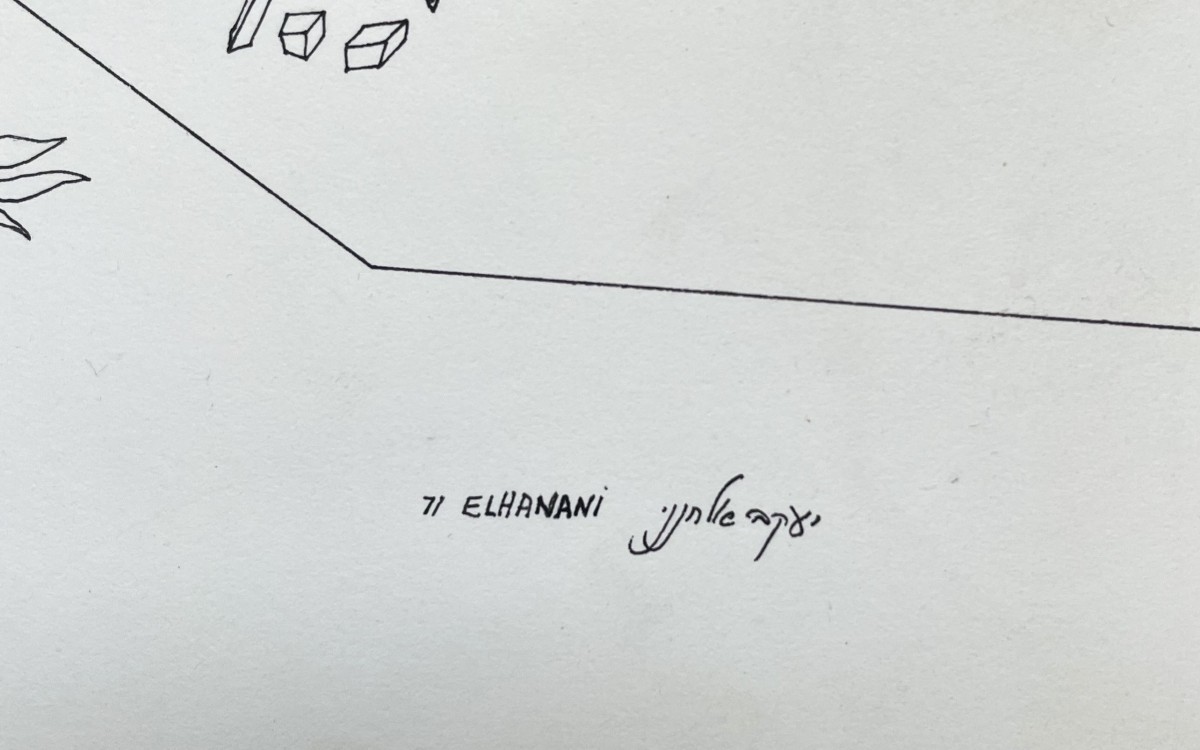 71 ELHANANI יעקב אלחנני